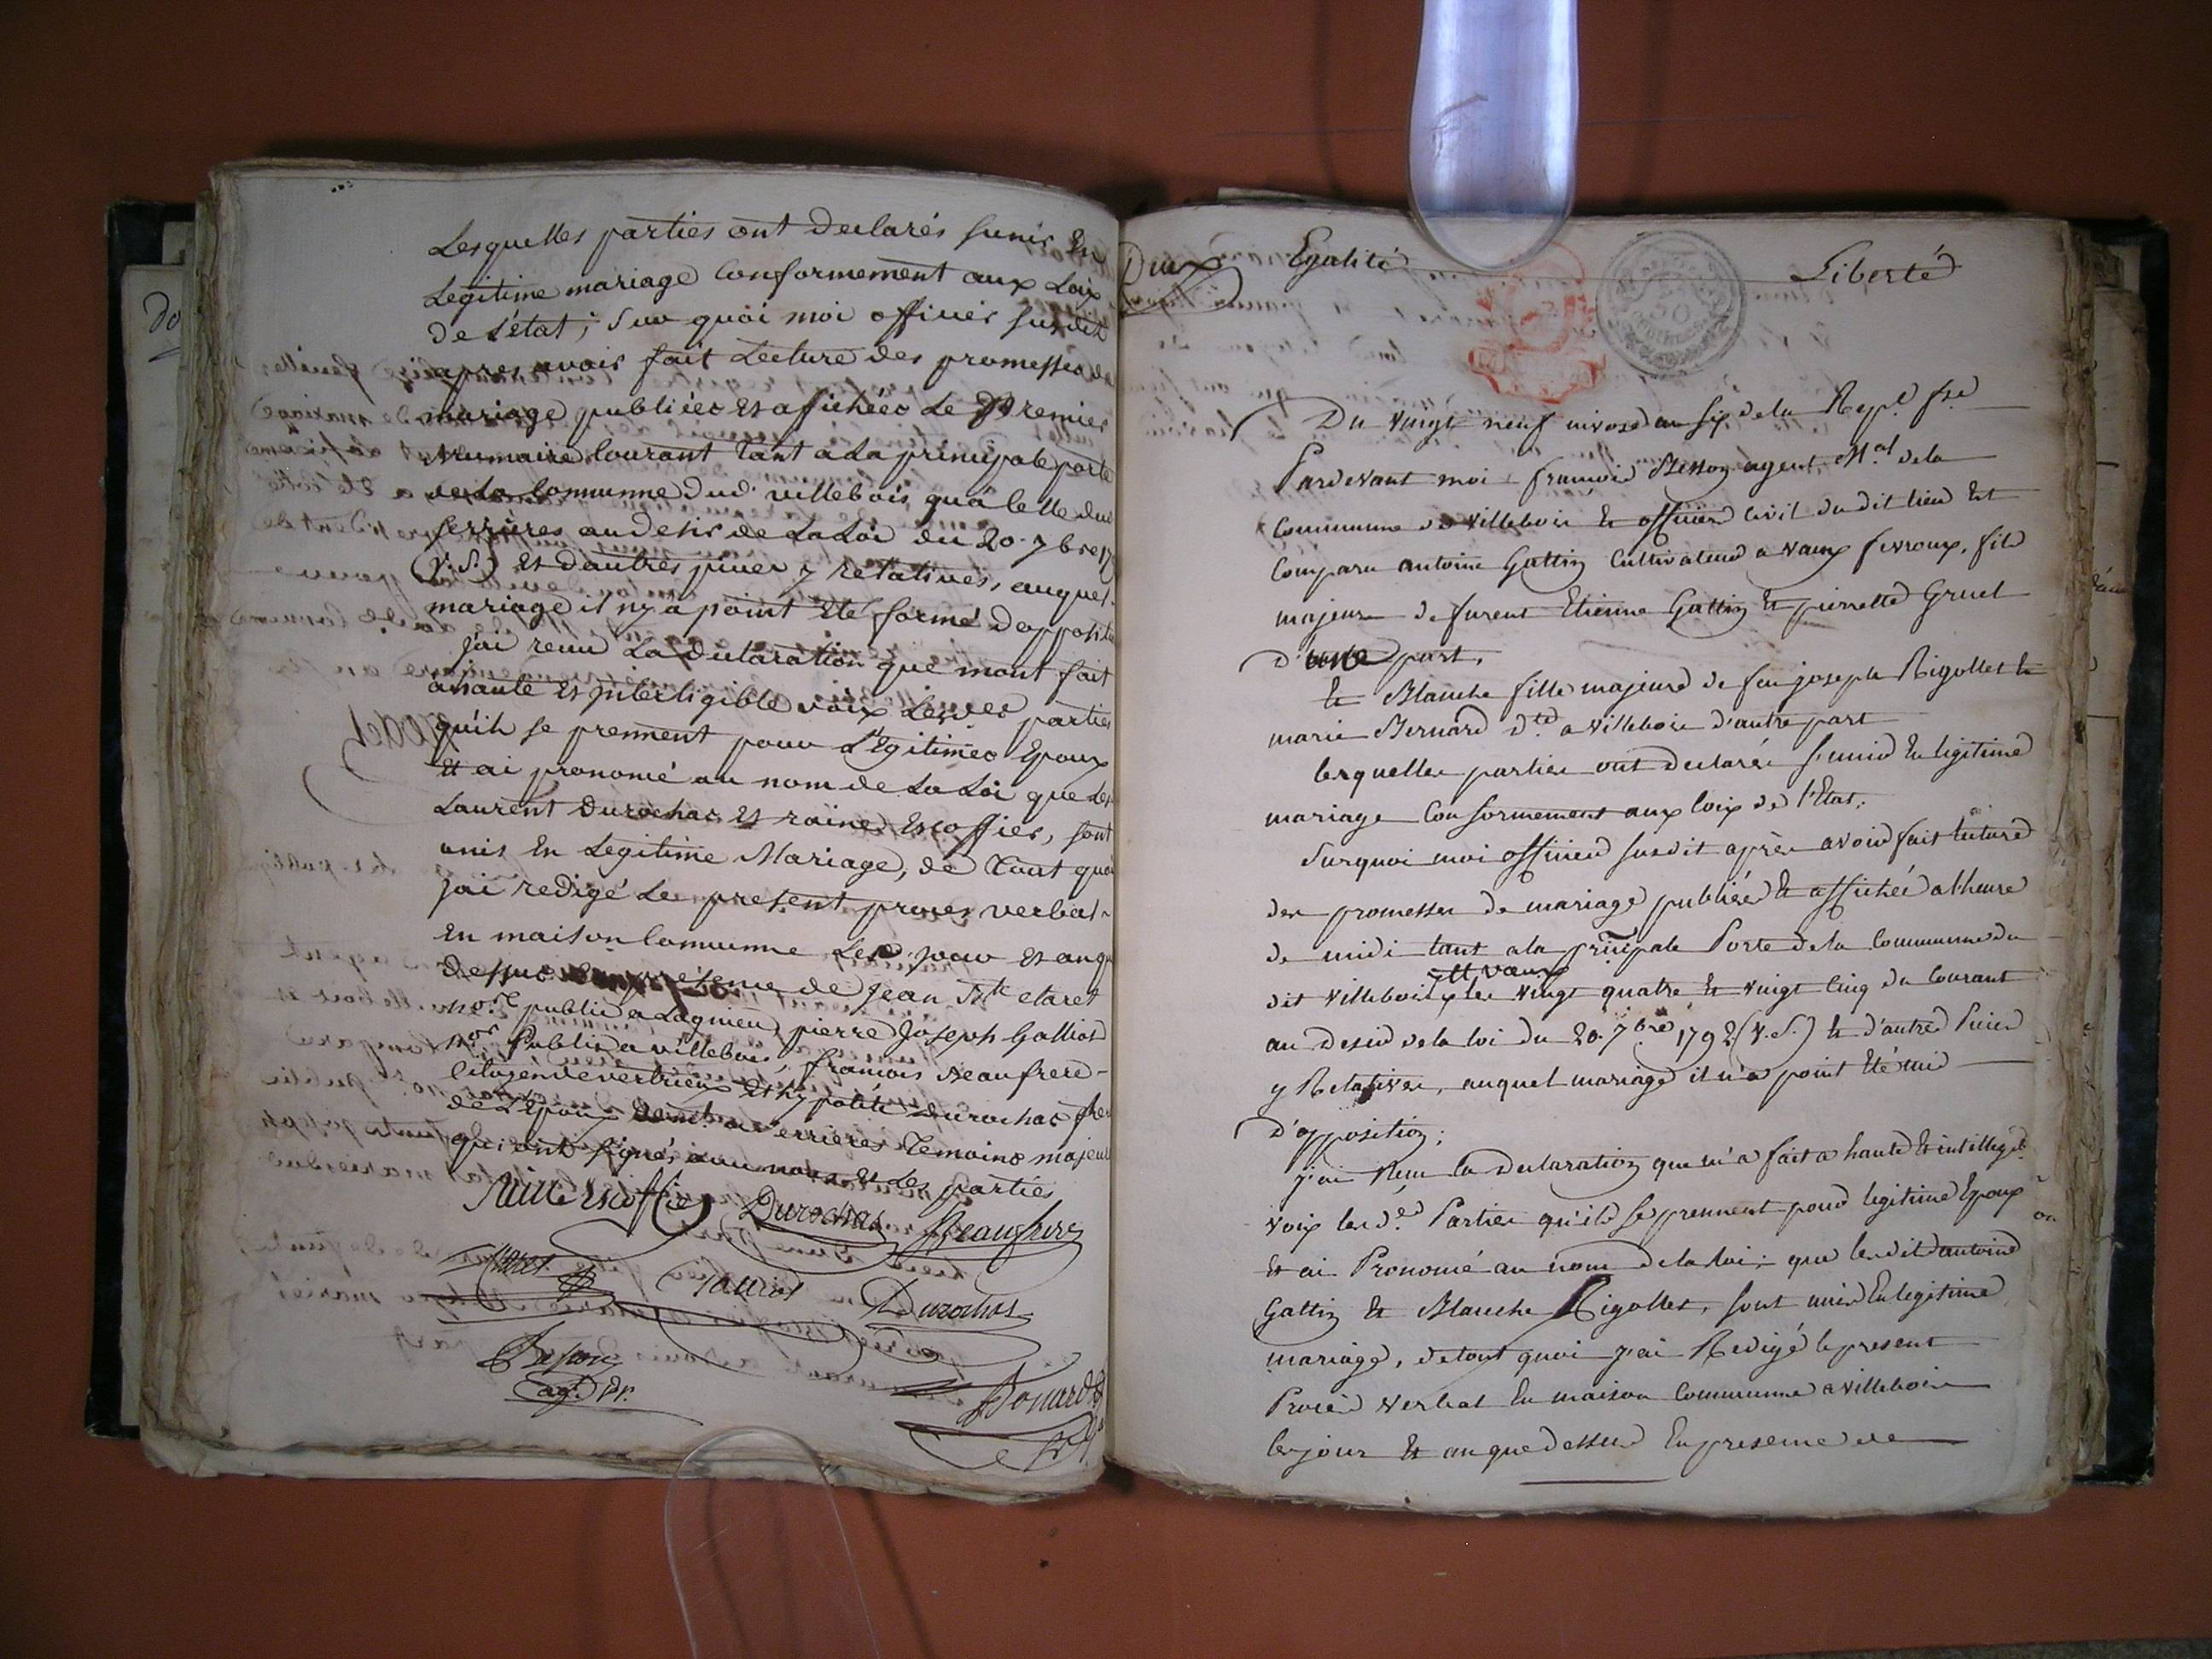 Lesquelles parties ont declarés sunir En
Legitime mariage Conformement aux Loix
de L'état ; sur quoi moi officier susdit
apres avoir fait Lecture des promesses de
mariage publiées et affichées Le Premier
Brumaire Courant tant a La principale porte
de La Commune dud. villebois qu'a Celle dud
serrières au desir de La Loi du 20. 7bre 17
(v.S.) et dautres pieces y relatives, auquel
mariage il ny a point Eté formé d'opposition
j'ai recu La declaration que mont fait
a haute et jnterligible voix Lesdes parties
qu'ils se prennent pour Légitimes Epoux
Et ai prononcé au nom de La Loi que Les
Laurent Durochat et raine Escoffier, sont
unis En Legitime Mariage, de tout quoi
jai redigé Le present proces verbal
En maison Commune Led. jour et an que
dessus En presence de jean Bte claret
nore public a Lagnieu, pierre Joseph Galliot
nor Public a villebois, francois Beaufrere
Citoyen de vertrieux Et hypolite Durochat frere
de L'Epoux demt. a serrieres temoins majeurs
qui ont signés avec nous et Les parties
Reine Escoffier Durochat Beaufrere
Claret Galliot Durochat
Besson
agt. Bouard
Deux Egalité Liberté
Du vingt neuf nivose an six de la Repe. fse
Pardevant moi françois Besson agent Mal de la
Commune de villebois & officier civil dudit lieu Est
Comparu antoine Gattin Cultivateur a vaux fevroux, fils
majeure de furent Etienne Gattin Et pierrette Gruel
d'une part.
Et Blanche fille majeure de feu joseph Rigollet Et
marie Bernard dte a villebois d'autre part
lesquelles parties ont declarés s'unir En legitime
mariage Conformement aux loix de l'Etat ;
Surquoi moi officier susdit après avoir fait lecture
des promesses de mariage publiée & affichée a l'heure
de midi tant a la principale Porte de la Commune du
dit villebois les vingt quatre Et vingt Cinq du Courant
au desir de la loi du 20. 7bre 1792 (v.S.) & d'autres Pieces
y Relatives, auquel mariage il n'a point Eté mis
D'opposition ;
j'ai recu la declaration que m'a fait a haute Et intelligeb
voix lesdes Parties qu'ils se prennent pour legitime Epoux
Et ai Prononcé au nom de la loi ; que lesdits antoine
Gattin Et Blanche Rigollet, sont unis En legitime
mariage, de tout quoi j'ai Redigé le present
Procès verbal En maison Commune a villebois
les jour Et an que dessus En presence de